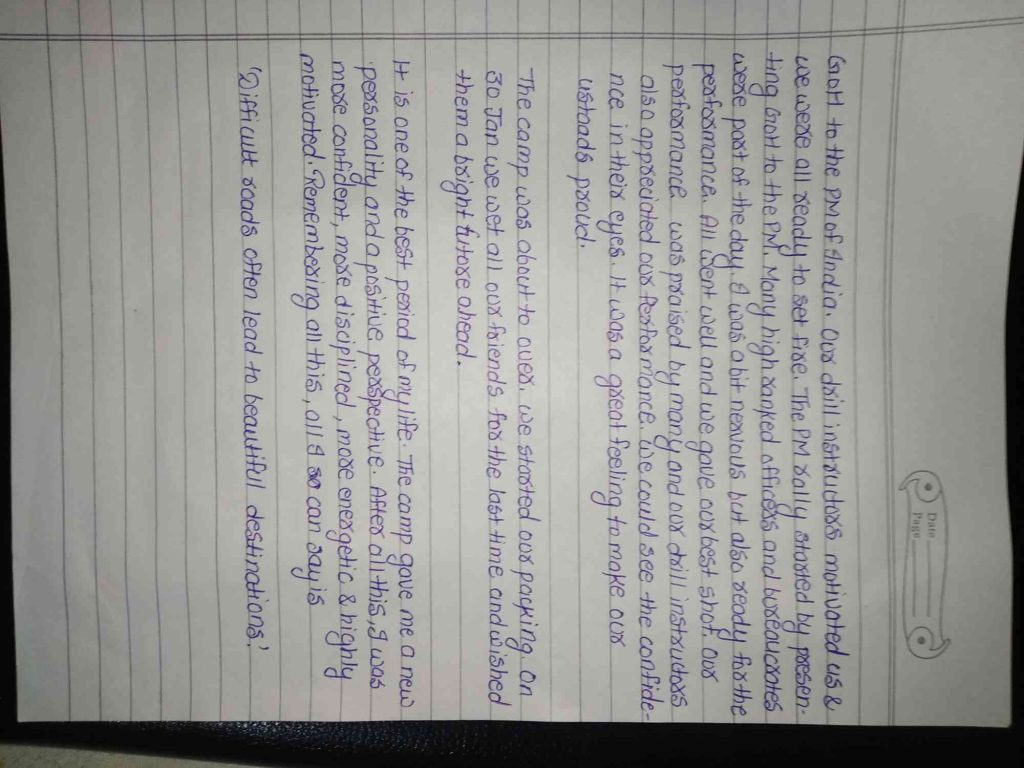 Date
Page
GOH to the PM of India. Our drill instructors motivated us &
we were all ready to set fire. The PM rally started by presen-
ting GOH to the PM. Many high ranked officers and bureaucrates
were part of the day. I was a bit nervous but also ready for the
performance. All went well and we gave our best shot. Our
performance was praised by many and our drill instructors
also appreciated our performance. We could see the confide-
nce in their eyes. It was a great feeling to make our
ustaads proud.
The camp was about to over. we started our packing. On
30 Jan we wet all our friends for the last time and wished
them a bright future ahead.
It is one of the best period of my life. The camp gave me a new
personality and a positive perspective. After all this, I was
more confident, more disciplined, more energetic & highly
motivated. Remembering all this, all I can say is
'Difficult roads often lead to beautiful destinations.'